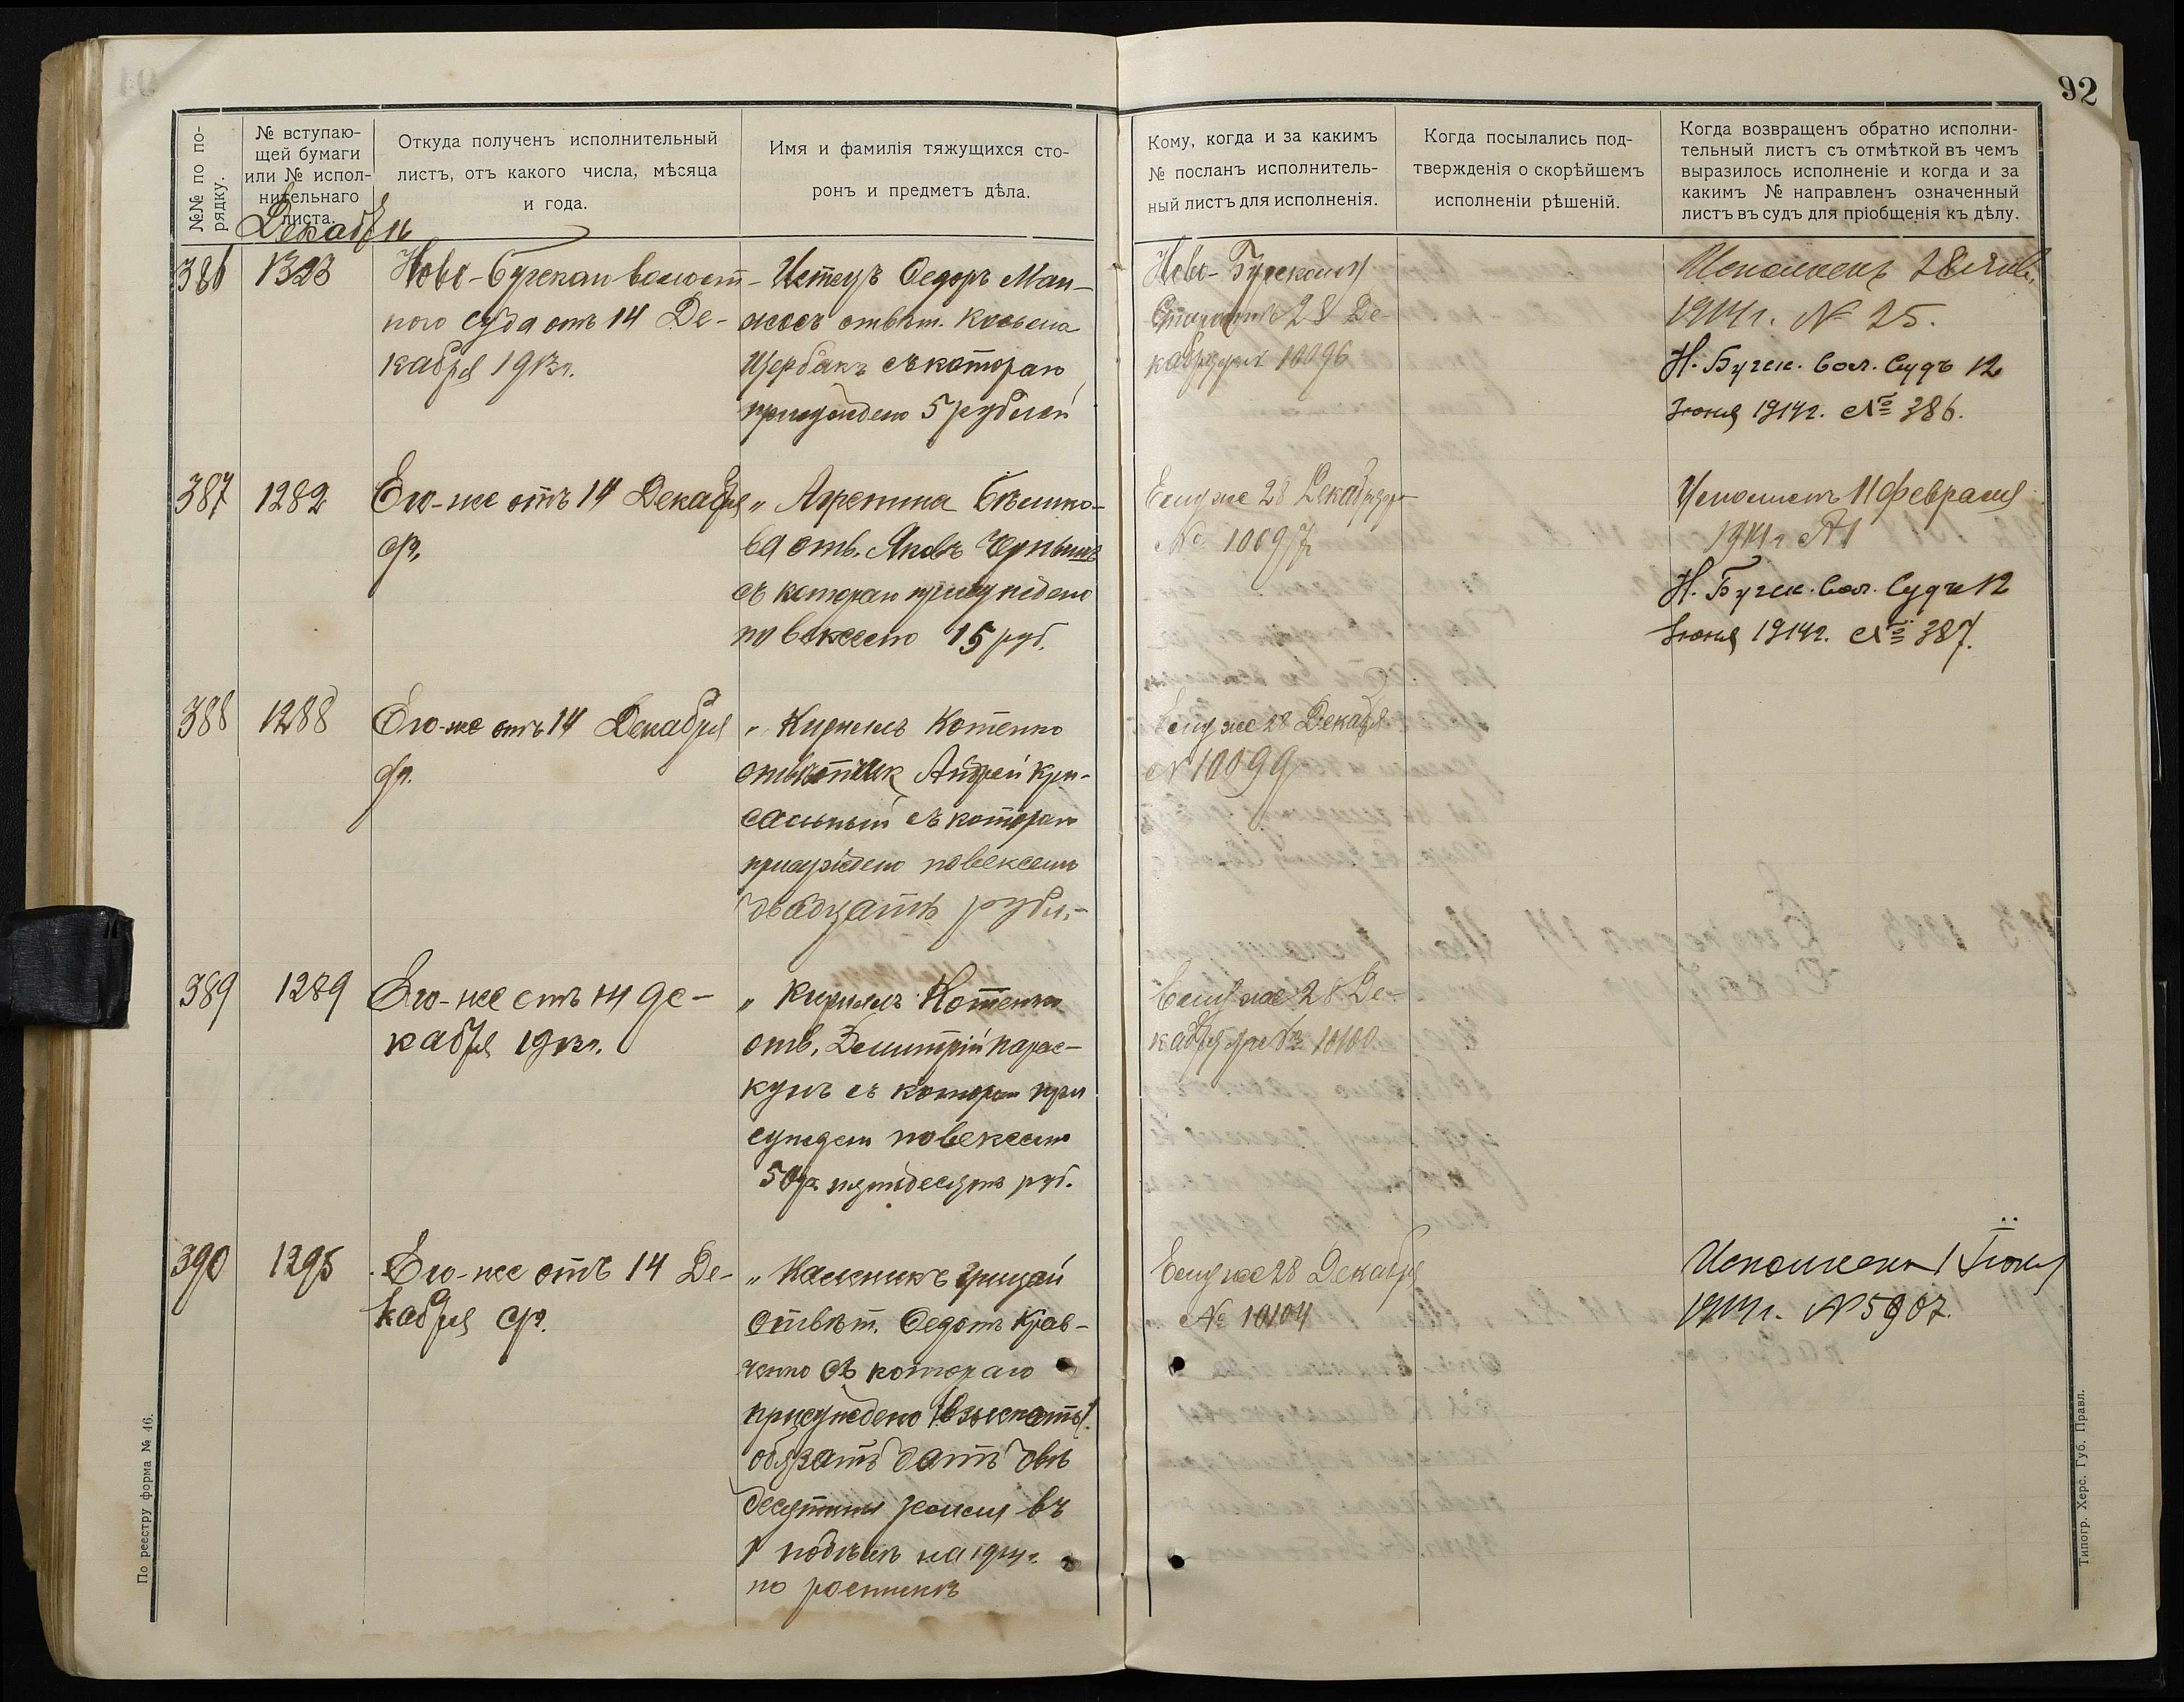 92
№№ по по-
рядку.
№ вступаю-
щей бумаги
или № испол-
нительнаго
листа.
Откуда полученъ исполнительный
листъ, отъ какого числа, мѣсяца
и года.
Имя и фамилія тяжущихся сто-
ронъ и предметъ дѣла.
Кому, когда и за какимъ
№ посланъ исполнитель-
ный листъ для исполненія.
Когда посылались под-
твержденія о скорѣйшемъ
исполненіи рѣшеній.
Когда возвращенъ обратно исполни-
тельный листъ съ отмѣткой въ чемъ
выразилось исполненіе и когда и за
какимъ № направленъ означенный
листъ въ судъ для пріобщенія къ дѣлу.
Декабрь
386
1323
Ново-Бугскаго волост-
ного суда отъ 14 Де-
кабря 1913г.
Истецъ Федоръ
отвѣт.
Щербакъ съ котораго
присуждено 5 рублей
Ново-Бугскому
Старостѣ 28 Де-
кабря 10096
Исполненъ 28 Янв.
1914г. № 25.
Н. Бугск. Вол. Судъ 12
Іюня 1914г. № 386.
387
1282
Его-же отъ 14 Декабря
с/г.
„ Агрепина
ва отв. Яковъ
съ котораго присуждено
по векселю 15 руб.
Ему же 28 Декабря
№ 10097
Исполненъ 11 февраля
1914г №
Н. Бугск. Вол. Судъ 12
Іюня 1914г. № 387.
388
1288
Его-же отъ 14 Декабря
с/г.
„ Кириллъ Котенко
отвѣтчик Андрей
съ котораго
присуждено по векселю
двадцать рубл.
Ему же 28 Декабря
№ 10099
389
1289
Его-же отъ 14 де-
кабря 1913г.
„ Кириллъ Котенко
отв. Дмитрій Парас-
кунъ съ котораго при
сужден по векселю
50р. пятьдесятъ руб.
Ему же 28 Де-
кабря № 10100
390
1295
Его-же отъ 14 Де-
кабря с/г.
„ Грицай
Отвѣт. Федотъ Крав-
ченко съ котораго
присуждено взыскать
обязать дать двѣ
десятины земли въ
на 1914г.
по роспискѣ
Ему же 28 Декабря
№ 10104
Исполненъ 1 Іюня
1914г. № 5907.
По реестру форма № 46.
Типогр. Херс. Губ. Правл.